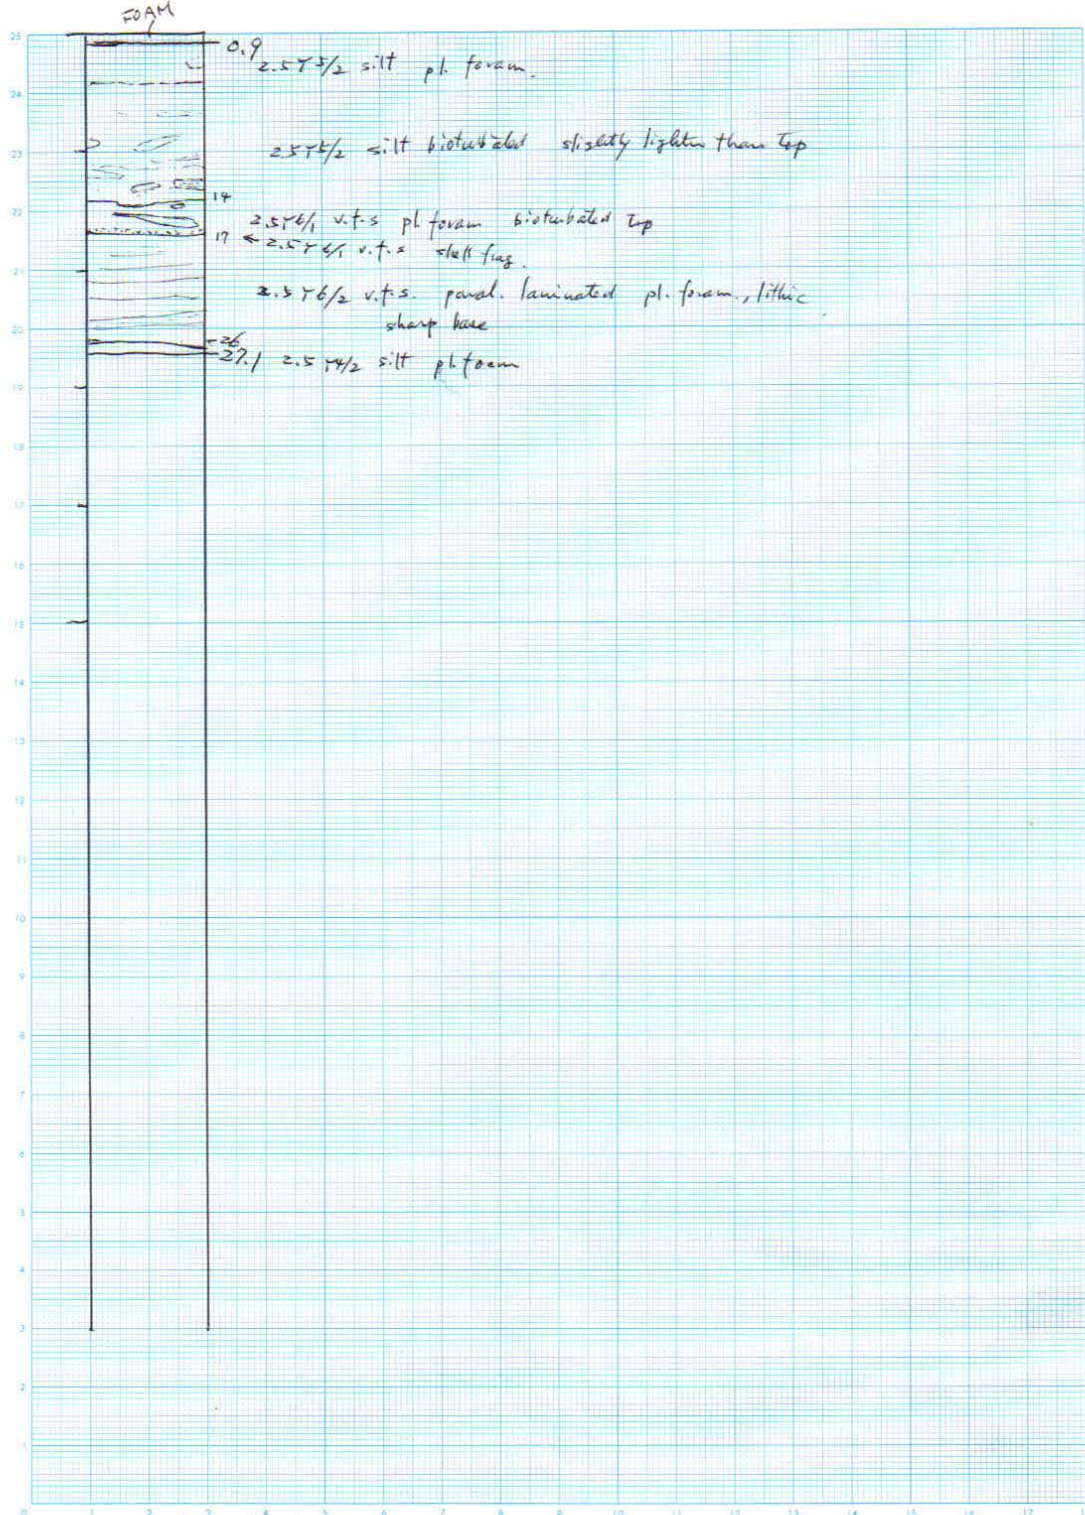 FOAM
0.9
2.5Y5/2 silt pl. foram.
2.5Y5/2 silt bioturbated slightly lighter than top
14
2.5Y6/1 v.f.s pl foram bioturbated top
17 ← 2.5Y6/1 v.f.s shell frag.
2.5Y6/2 v.f.s. paral. laminated pl. foram., lithic
sharp base
26
27.1 2.5Y4/2 silt pl. foram
25
24
23
22
21
20
19
18
17
16
15
14
13
12
11
10
9
8
7
6
5
4
3
2
1
0 1 2 3 4 5 6 7 8 9 10 11 12 13 14 15 16 17